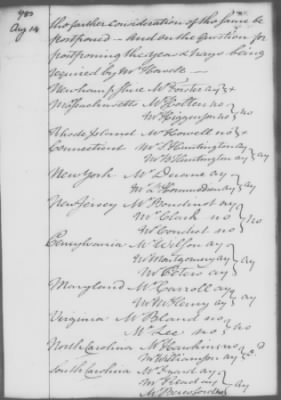 Aug 14
the farther consideration of the same be
postponed — And on the question for
postponing the yeas & nays being
required by Mr Howell —
Newhampshire Mr Foster ay +
Massachusetts Mr Holten no } no
Mr Higginson no
Rhode Island Mr Howell no +
Connecticut Mr S Huntington ay } ay
Mr B Huntington ay
New York Mr Duane ay } ay
Mr L'Hommedieu ay
New Jersey Mr Boudinot ay } no
Mr Clark no
Mr Condict no
Pensylvania Mr Wilson ay } ay
Mr Montgomery ay
Mr Peters ay
Maryland Mr Carroll ay } ay
Mr McHenry ay
Virginia Mr Bland no } no
Mr Lee no
North Carolina Mr Hawkins no } d
Mr Williamson ay
South Carolina Mr Izard ay } ay
Mr Read ay
Mr Beresford